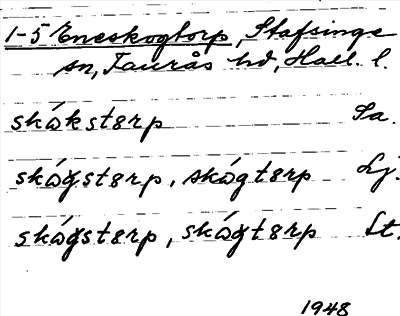 1-5 Eneskogtorp, Stafsinge
sn, Faurås hd, Hall. l.
skó̀kstɵrp Sa.
skógstɵrp, skógtɵrp Lj.
skógstɵrp, skógtɵrp Lt.
1948